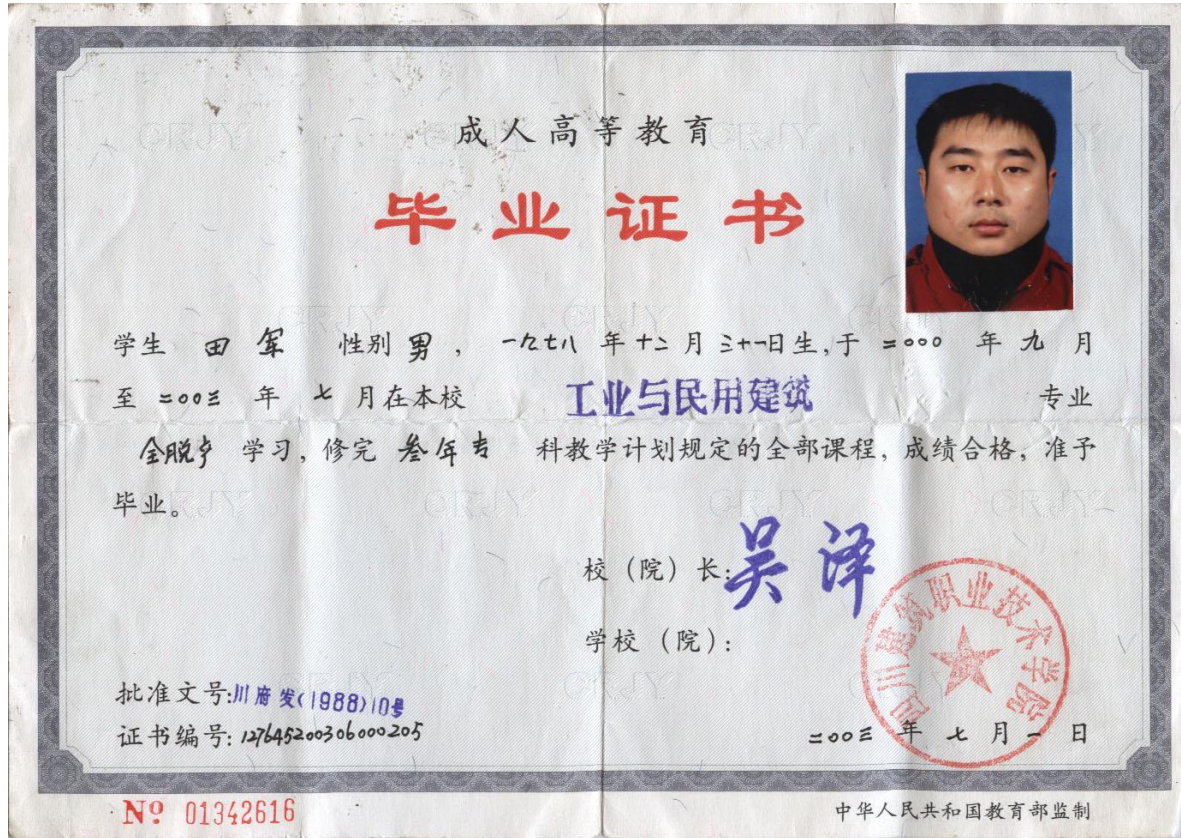 成人高等教育
毕业证书
学生 田军 性别 男 ， 一九七八 年 十二 月 三十一日生,于 二〇〇〇 年 九 月
至 二〇〇三 年 七 月在本校 工业与民用建筑 专业
全脱产 学习，修完 叁年专 科教学计划规定的全部课程，成绩合格，准予
毕业。
校（院）长: 吴泽
学校（院）:
四川建筑职业技术学院
批准文号:川府发(1988)10号
证书编号: 127645200306000205
二〇〇三 年 七 月 一 日
№ 01342616
中华人民共和国教育部监制
CRJY